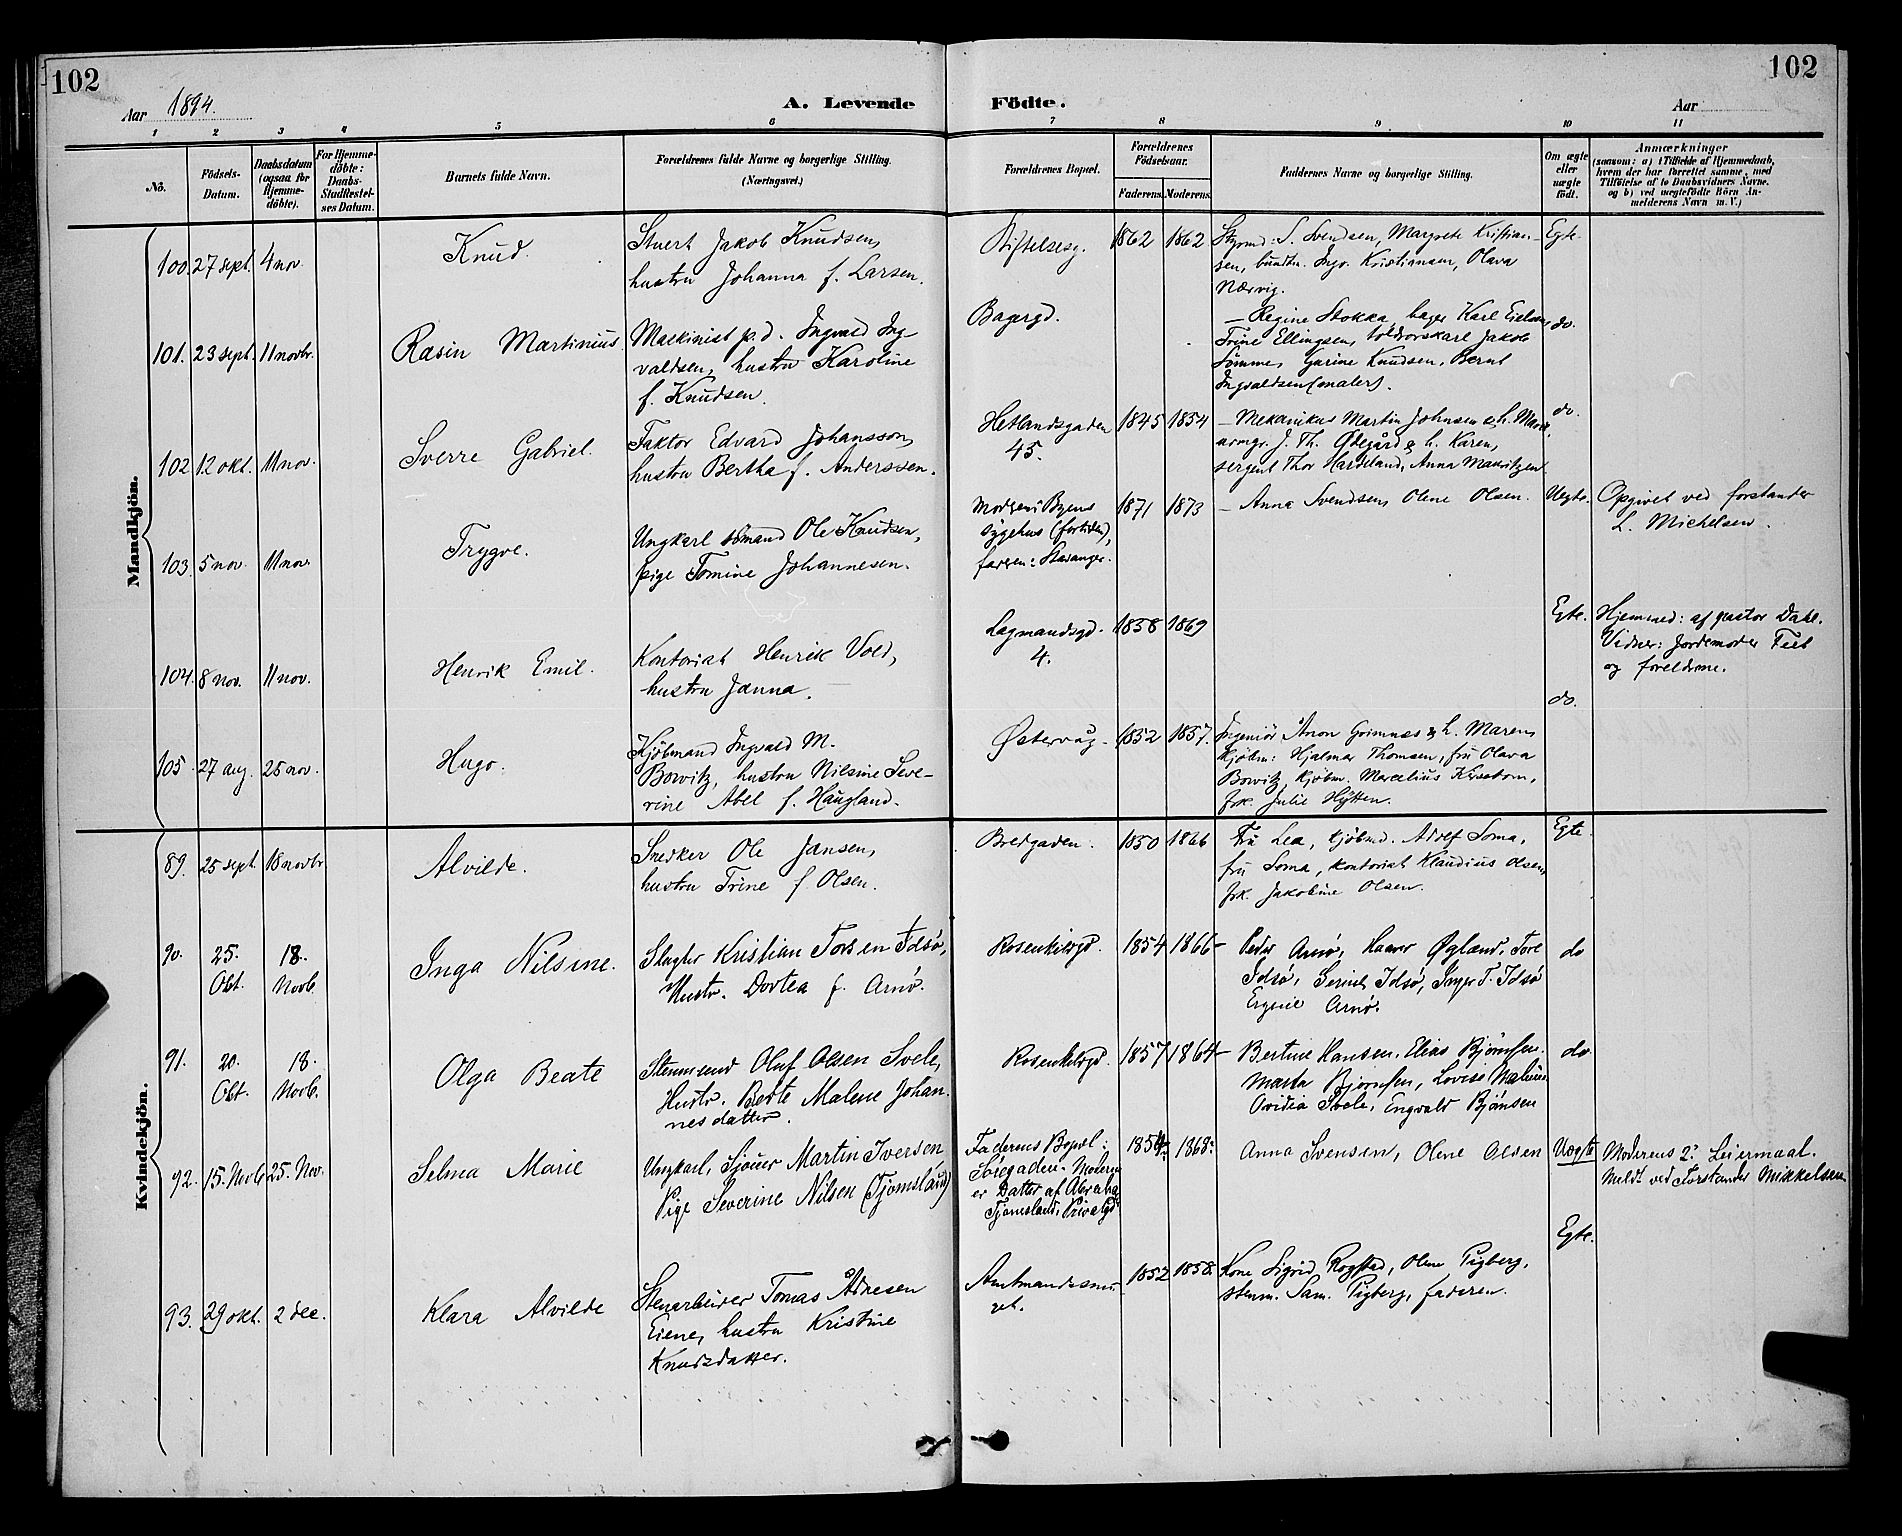 102
102
Aar 1894.
A. Levende Födte.
Aar
1 2 3 4 5 6 7 8 9 10 11
Nô.
Födsels-
Datum.
Daabsdatum
(ogsaa for
Hjemme-
döbte).
For Hjemme-
döbte:
Daabs-
Stadfæstel-
ses Datum.
Barnets fulde Navn.
Forældrenes fulde Navne og borgerlige Stilling.
(Næringsvei.)
Forældrenes Bopæl.
Forældrenes
Födselsaar.
Faderens. Moderens.
Faddernes Navne og borgerlige Stilling.
Om ægte
eller
uægte
födt.
Anmærkninger
(saasom: a) i Tilfælde af Hjemmedaab,
hvem der har forrettet samme, med
Tilföielse af to Daabsvidners Navne,
og b) ved uægtefödte Börn An-
melderens Navn m. V.)
Mandkjön.
100. 27 sept. 4 nov.
Knud.
Stuert Jakob Knudsen,
hustru Johanna f. Larsen.
Stiftelsesg. 1862 1862
Styrmd: S. Svendsen, Margrete Kristian-
sen, bundtm. Ingv. Kristiansen, Olava
Nærvig.
Egte.
101. 23 sept. 11 novbr.
Rasin Martinius.
Maskinist p.d. Ingvald Ing-
valdsen, hustru Karoline
f. Knudsen.
Bagergd.
— Regine Stokka, bager Karl
Trine Ellingsen, toldvorskarl Jakob
Sömme, Gurine Knudsen, Bernt
Ingvaldsen (maler).
do.
102 12 okt. 11 nov.
Sverre Gabriel.
Faktor Edvard Johansson,
hustru Bertha f. Anderssen.
Hetlandsgaden
45.
1845 1854
— Mekanikus Martin Johnsen & h. Marie,
J. Th. Ødegård & h. Karen,
sergent Thor Hardeland, Anna Mauritzen
do.
103. 5 nov. 11 nov.
Trygve.
Ungkarl sömand Ole Knudsen,
pige Tomine Johannesen.
Moderen: Byens
sygehus (fortiden),
faderen: Stavanger.
1871 1873
— Anna Svendsen, Olene Olsen.
Uegte.
Opgivet ved forstander
L. Michelsen.
104. 8 nov. 11 nov.
Henrik Emil.
Kontorist Henrik Vold,
hustru Janna.
Lagmandsgd.
4.
1858 1869
Egte.
Hjemmed: af pastor Dahl.
Vidner: Jordemoder
og foreldrene.
105. 27 aug. 25 nov.
Hugo.
Kjöbmand Ingvald M.
Bowitz, hustru Nilsine Seve-
rine Abel f. Haugland.
Østervåg. 1852 1857.
Ingeniör Anon Grimnes & h. Maren,
kjöbm: Hjalmar Thomsen, fru Olava
Bowitz, kjöbm. Marcelius
frk. Julie Hytten.
do.
Kvindekjön.
89. 25 sept. 18 novbr
Alvilde.
Snedker Ole Jansen,
hustru Trine f. Olsen.
Bredgaden. 1850 1866
Fru Lea, kjöbmd. Adolf Soma,
fru Soma, kontorist Klaudius Olsen,
frk. Jakobine Olsen.
Egte.
90. 25. Okt. 18. Novb.
Inga Nilsine.
Slagter Kristian Torsen Idsö,
Hustr. Dortea f. Arnö.
Rosenkildgd. 1854 1866 —
Peder Arnö, Haaver Øgland, Tore
Idsö, Serine Idsö, Inger T. Idsö
Arnö.
do
91. 20. Okt. 18. Novb.
Olga Beate
Stenmend Oluf Olsen Svele,
Hustr. Berte Malene Johan-
nesdatter.
Rosenkildgd. 1857 1864 —
Bertine Hansen, Elias Björnsen.
Marta Bjornsen, Lovise
Ovidia Svele, Engvald Björnsen
do
92. 15. Novb 25. Nov.
Selma Marie
Ungkarl, Sjömd Martin Iversen
Pige Severine Nilsen (Tjomsland)
Faderens Bopæl:
Söregaden. Moderen
er Datter af Abraham
Tjomsland, Privatgd.
1854 1868.
Anna Svensen, Olene Olsen
Uægte
Moderens 2. Leiermaal.
Meldt ved Forstander Mikkelsen
93. 29 okt. 2 dec.
Klara Alvilde
Stenarbeider Tomas Ådnesen
Eiene, hustru Kristine
Knudsdatter.
Amtmandssmu-
get.
1852 1858.
Kone Sigrid Rogstad, Olene Pigberg,
stenm. Sam. Pigberg, faderen.
Egte.